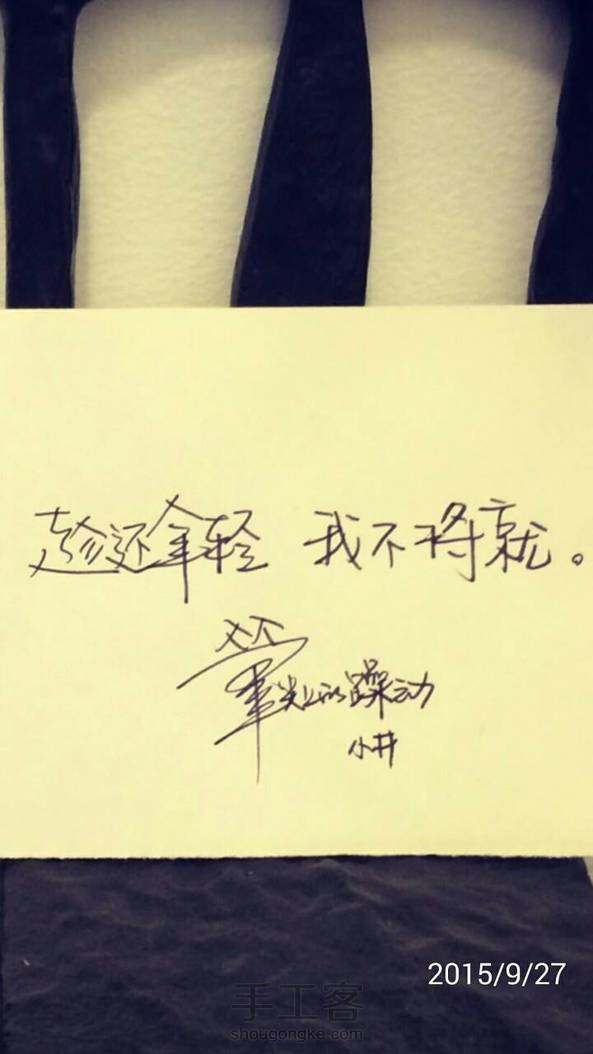 趁还年轻 我不将就。
笔尖上的躁动
小井
2015/9/27
手工客
shougongke.com